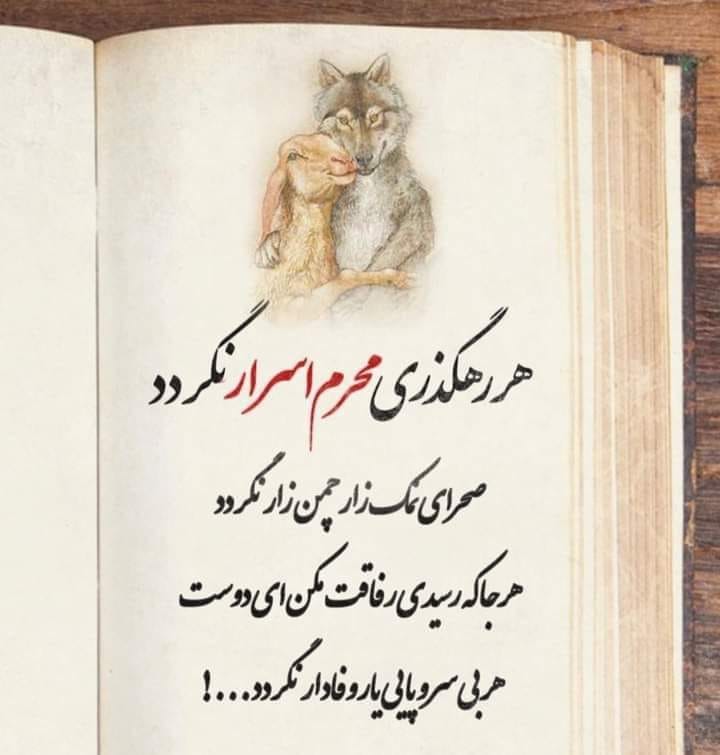 هر رهگذری محرم اسرار نگردد
صحرای نمک زار چمن زار نگردد
هر جا که رسیدی رفاقت مکن ای دوست
هر بی سر و پایی یار وفادار نگردد...!